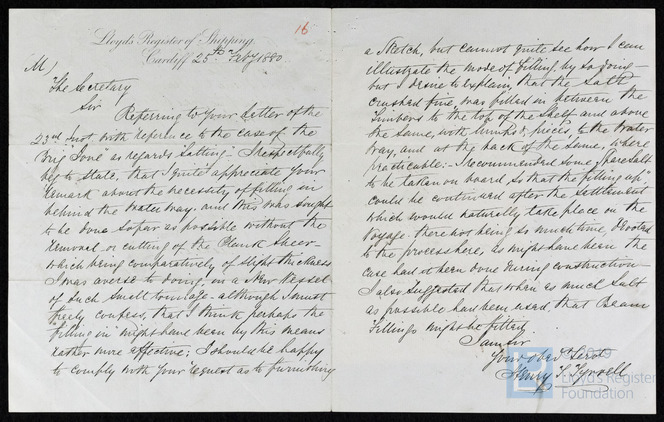 16
Lloyd's Register of Shipping,
Cardiff 25th Feby 1880
M/
The Secretary
Sir
Referring to your letter of the
23rd Inst. with reference to the case of the
Brig "Jove" as regards "Salting" I respectfully
beg to state, that I quite appreciate your
remark about the necessity of filling in
behind the Waterway. and this was sought
to be done so far as possible without the
removal or cutting of the Plank Sheer
which being comparatively of slight thickness
I was averse to doing, in a New Vessel
of such small tonnage. although I must
freely confess, that I think perhaps the
"filling in" might have been by this means
rather more effective; I should be happy
to comply with your request as to furnishing
a Sketch, but cannot quite see how I can
illustrate the mode of filling by so doing
but I desire to explain, that the Salt
crushed fine, was filled in between the
timbers to the top of the Shelf and above
the same, with lumps & pieces, to the Water
way, and at the back of the same, where
practicable:- I recommended some spare Salt
to be taken on board, so that the filling up
could be continued after the Settlement
which would naturally take place on the
Voyage. there not being so much time devoted
to the process here, as might have been the
case had it been done during construction
I also suggested that when as much Salt
as possible had been used, that Beam
Fillings might be fitted.
I am Sir
Your obedt. Servt.
Henry T. Tyrrell
Lloyd's Register
Foundation